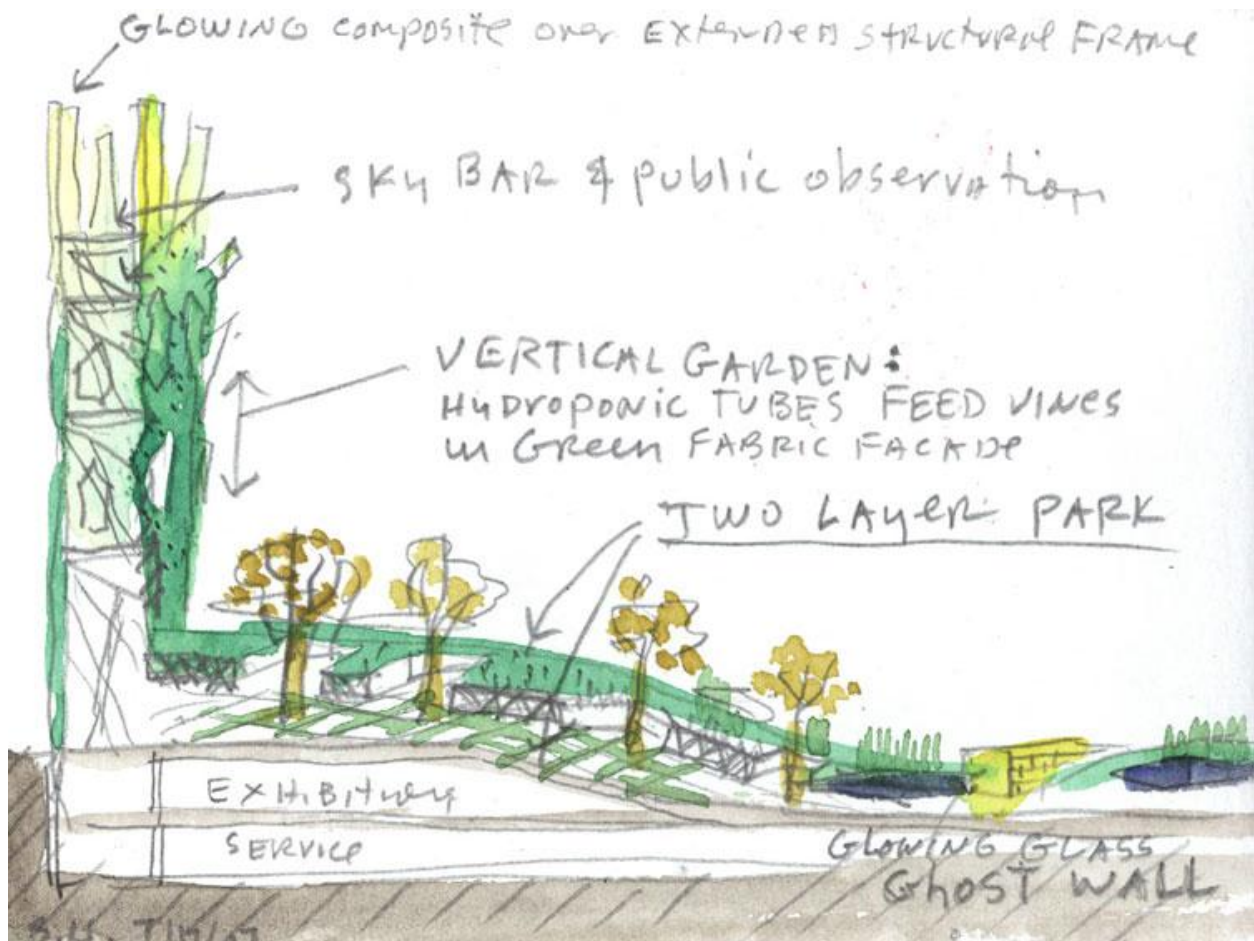 GLOWING composite over EXTENDED STRUCTURAL FRAME
SKY BAR & public observation
VERTICAL GARDEN:
HYDROPONIC TUBES FEED VINES
in Green FABRIC FACADE
TWO LAYER PARK
EXHIBITIONS
SERVICE
GLOWING GLASS
GHOST WALL